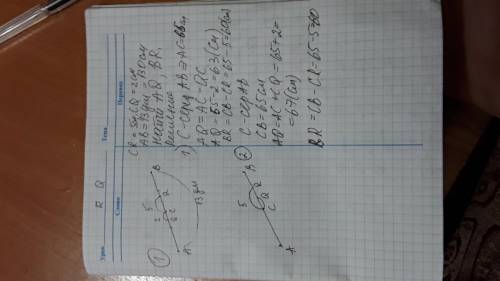 Урок
R Q
Тема
Слово
Перевод
CR = 5см, CQ = 2см
AB = 13дм = 130см
найти AQ, BR.
решение
1) C - серед AB ⇒ AC = 65см
AQ = AC - QC
AQ = 65 - 2 = 63(см)
BR = CB - CR = 65 - 5 = 60(см)
2) C - сер AB
CB = 65см
AQ = AC + CQ = 65 + 2 =
= 67(см)
BR = CB - CR = 65 - 5 = 60
1
A
2
5
B
13 дм
A
C
Q
5
B